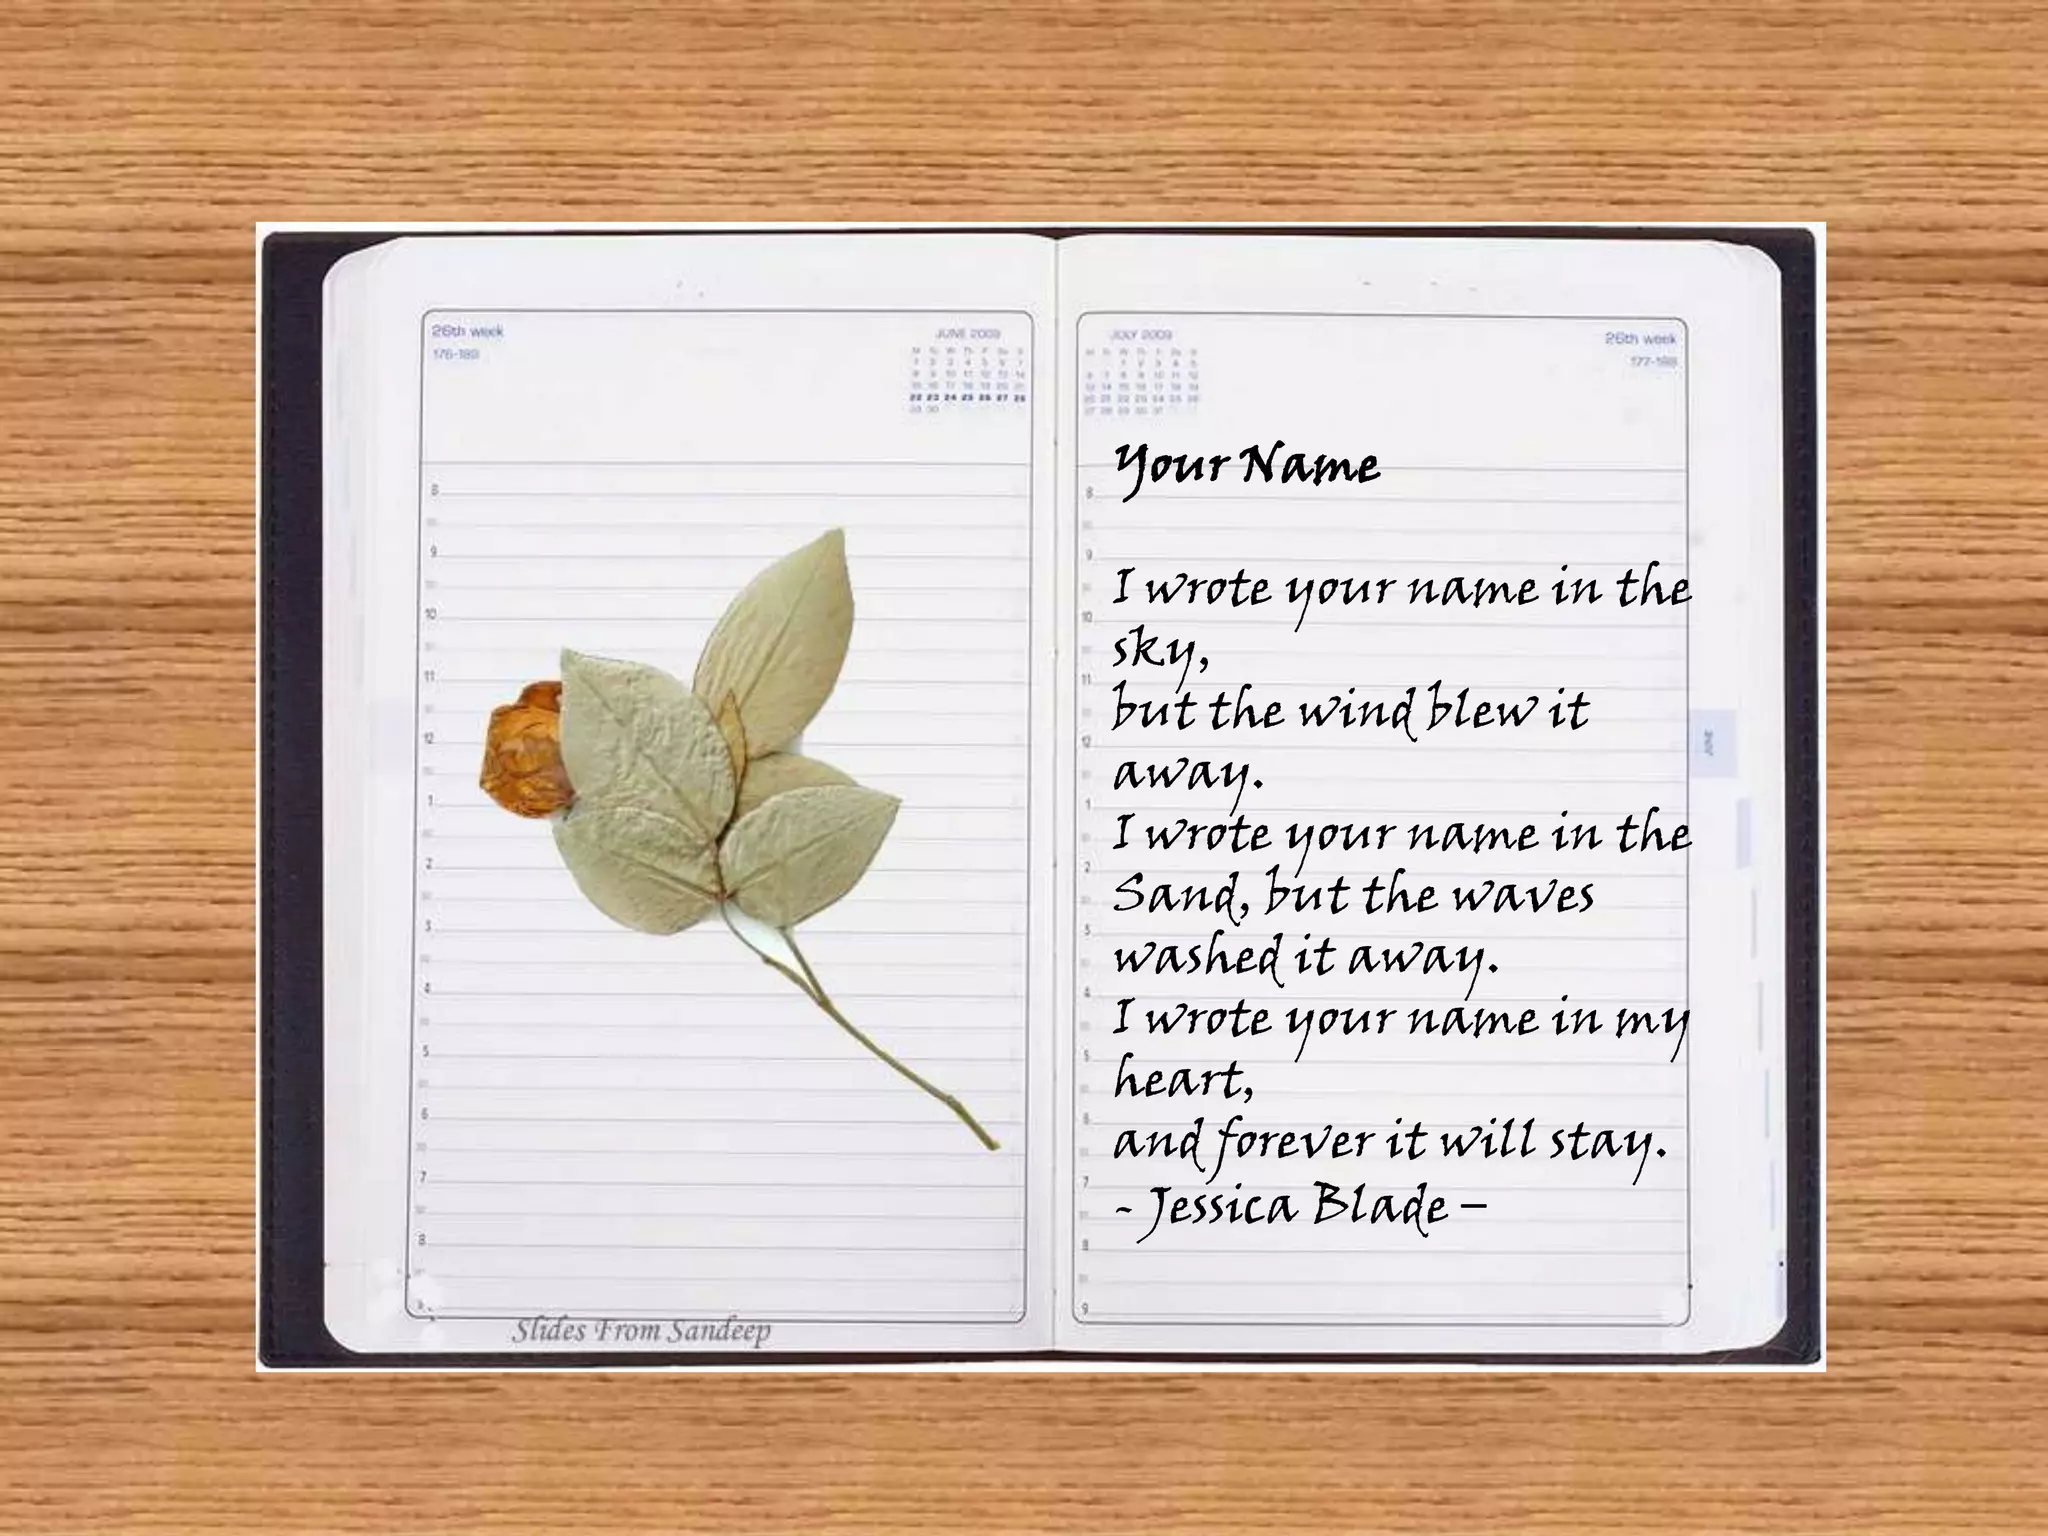 26th week
176-189
JUNE 2009
22 23 24 25 26 27 28
29 30
8
9
10
11
12
1
2
3
4
5
6
7
8
9
Slides From Sandeep
JULY 2009
26th week
8
9
10
11
12
1
2
3
4
5
6
7
8
9
Your Name
I wrote your name in the
sky,
but the wind blew it
away.
I wrote your name in the
Sand, but the waves
washed it away.
I wrote your name in my
heart,
and forever it will stay.
- Jessica Blade –